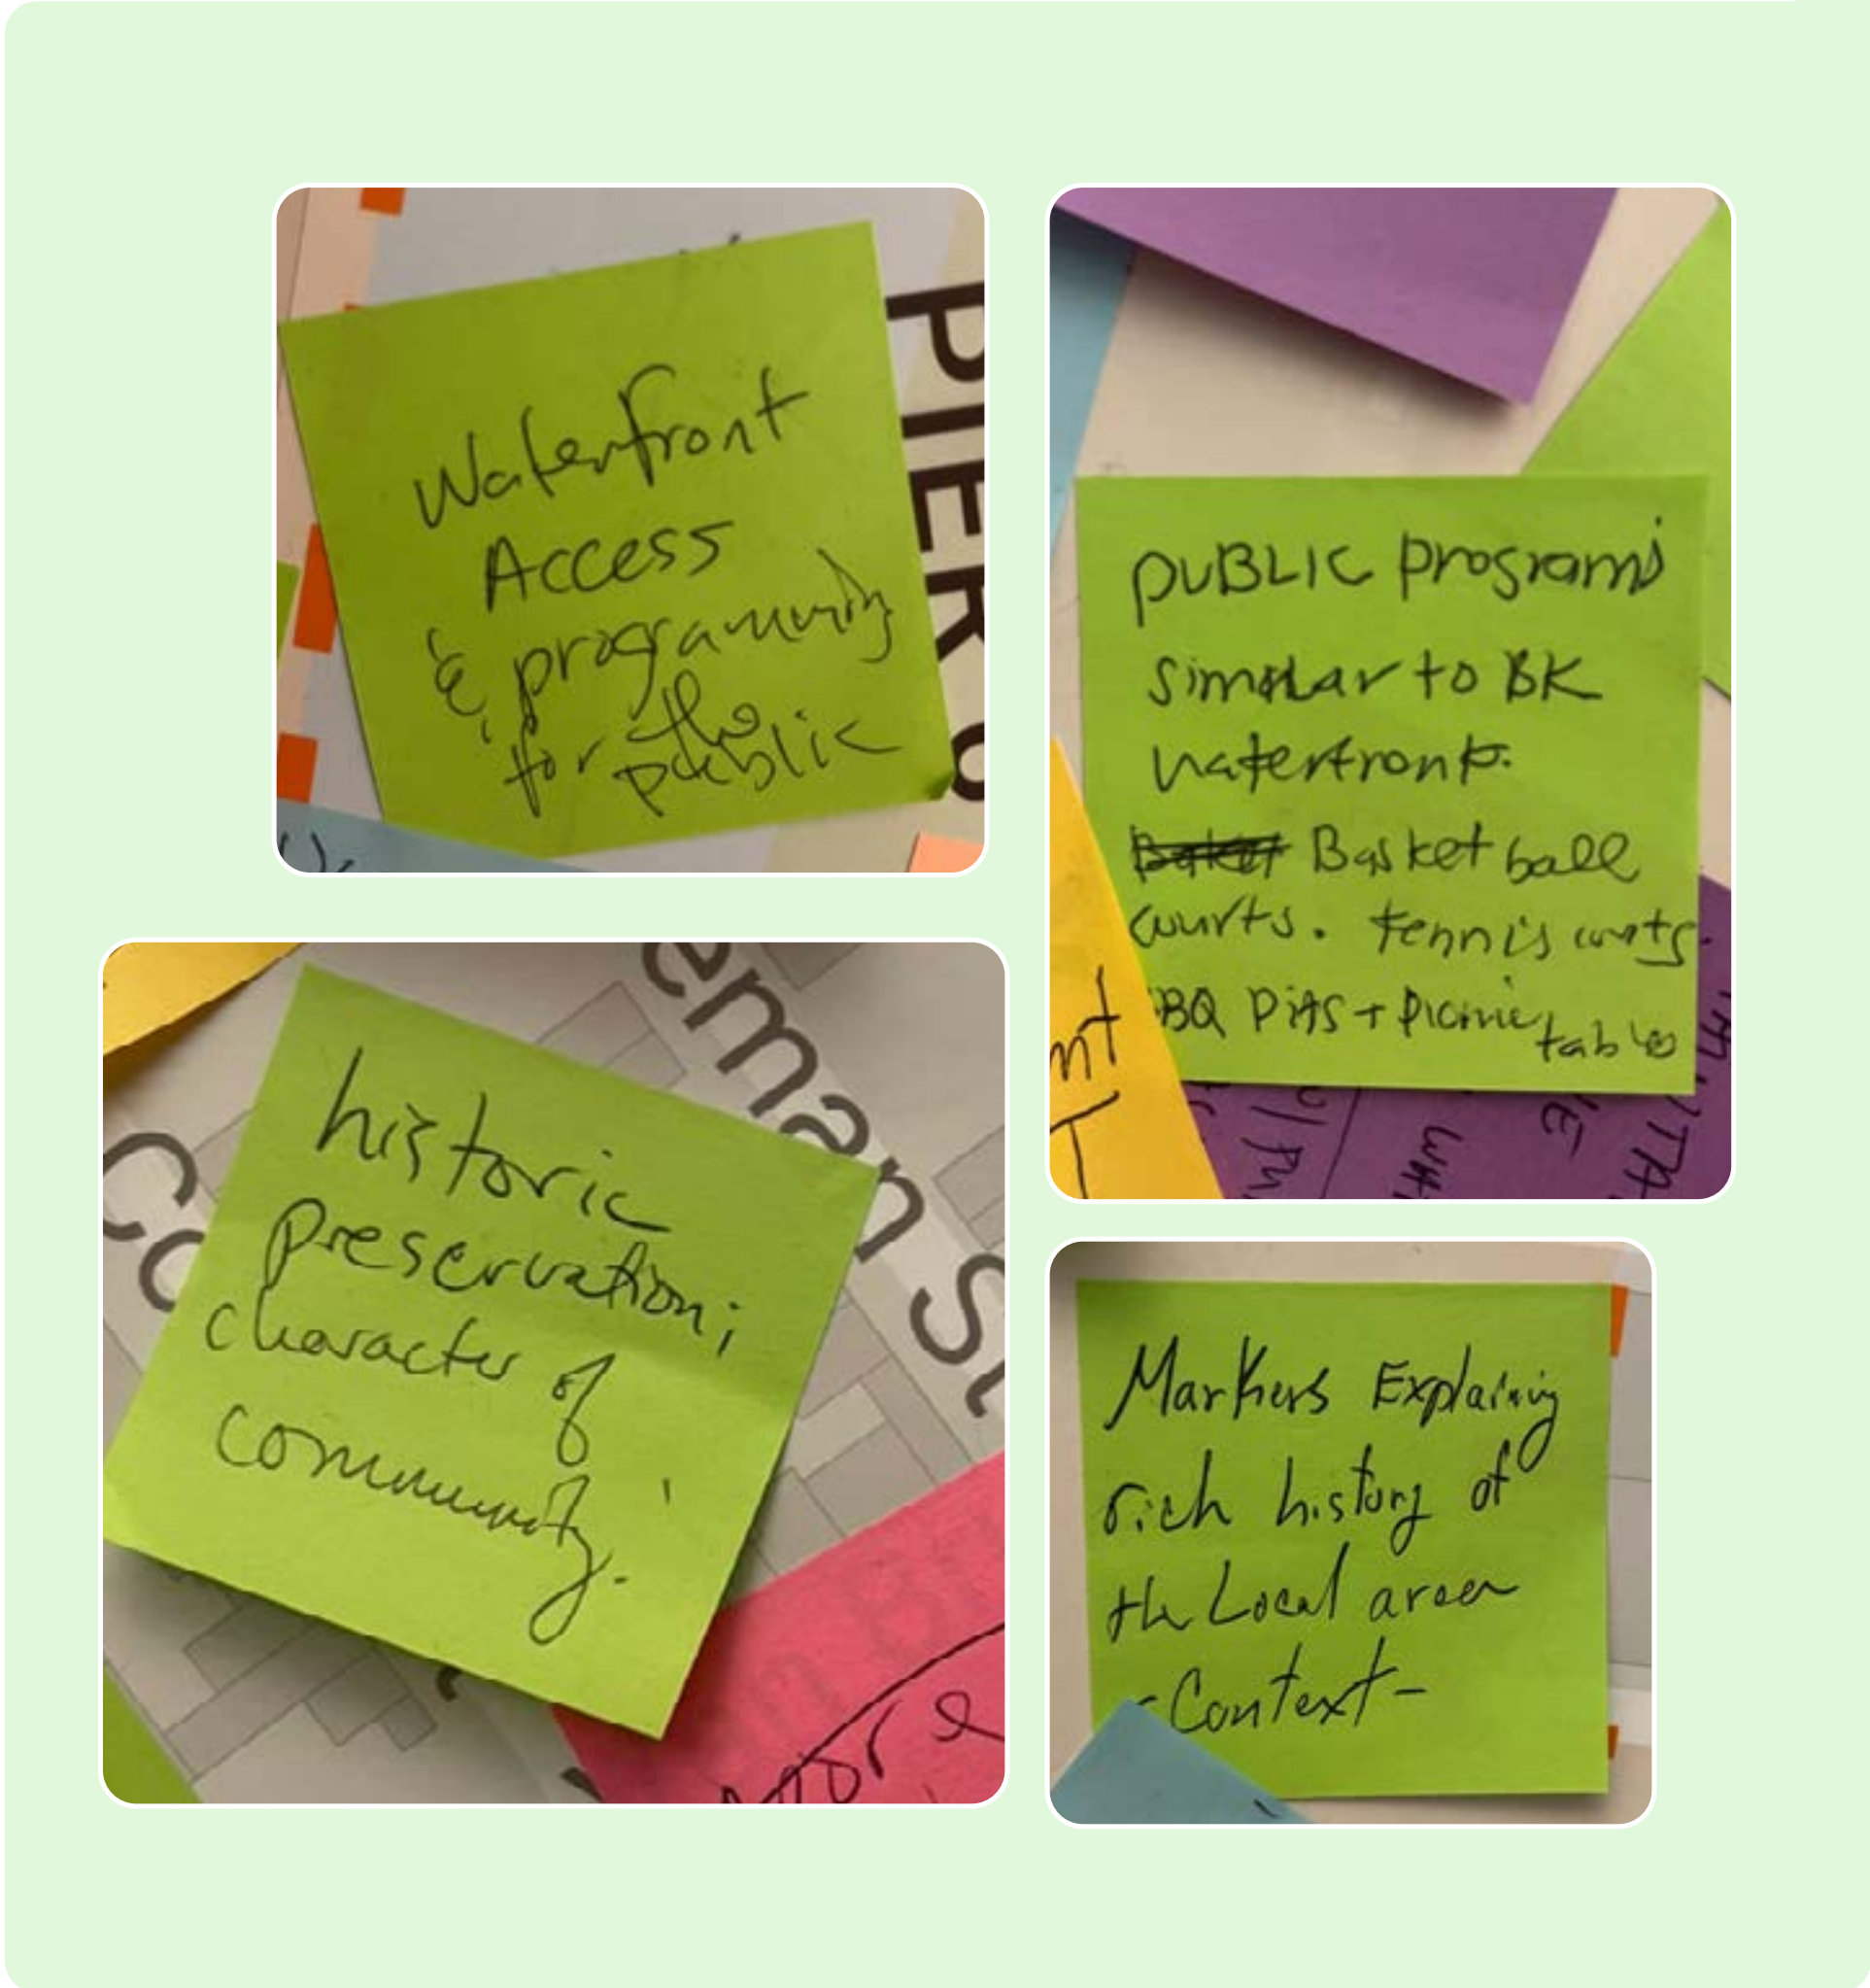 Waterfront
Access
& programming
for the
public
PIER
PUBLIC programs
similar to BK
waterfront.
Basketball
courts. tennis courts.
BQ Pits + Picnic
tables
nt
historic
preservation;
character of
community.
eman St
Co
more
Markers Explaining
rich history of
the Local area
- Context -